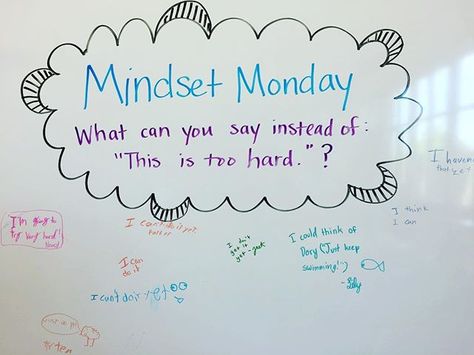 Mindset Monday
What can you say instead of:
"This is too hard."?
I haven
that yet
I think
I can
I'm going to
try very hard!
I can't do it yet
I could think of
Dory ("Just keep
swimming!")
- Lily
I don't
get it
yet -
I can
do it
I can't do it yet